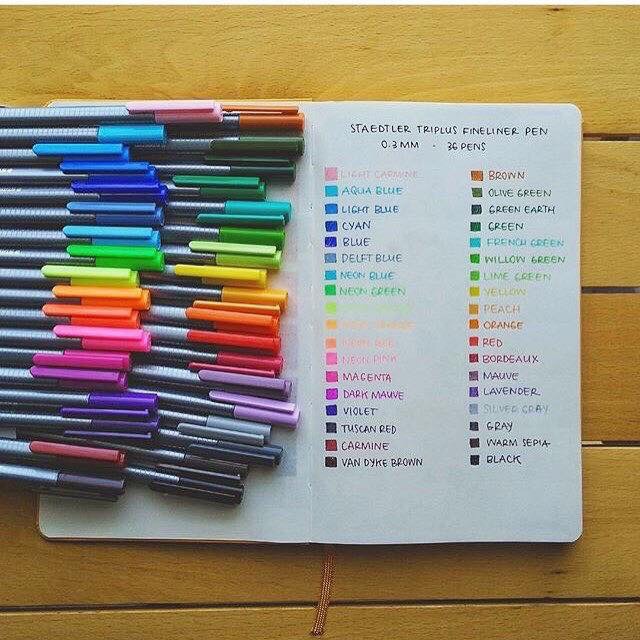 STAEDTLER TRIPLUS FINELINER PEN
0.3 MM - 36 PENS
LIGHT CARMINE
AQUA BLUE
LIGHT BLUE
CYAN
BLUE
DELFT BLUE
NEON BLUE
NEON GREEN
NEON ORANGE
NEON RED
NEON PINK
MAGENTA
DARK MAUVE
VIOLET
TUSCAN RED
CARMINE
VAN DYKE BROWN
BROWN
OLIVE GREEN
GREEN EARTH
GREEN
FRENCH GREEN
WILLOW GREEN
LIME GREEN
YELLOW
PEACH
ORANGE
RED
BORDEAUX
MAUVE
LAVENDER
SILVER GRAY
GRAY
WARM SEPIA
BLACK